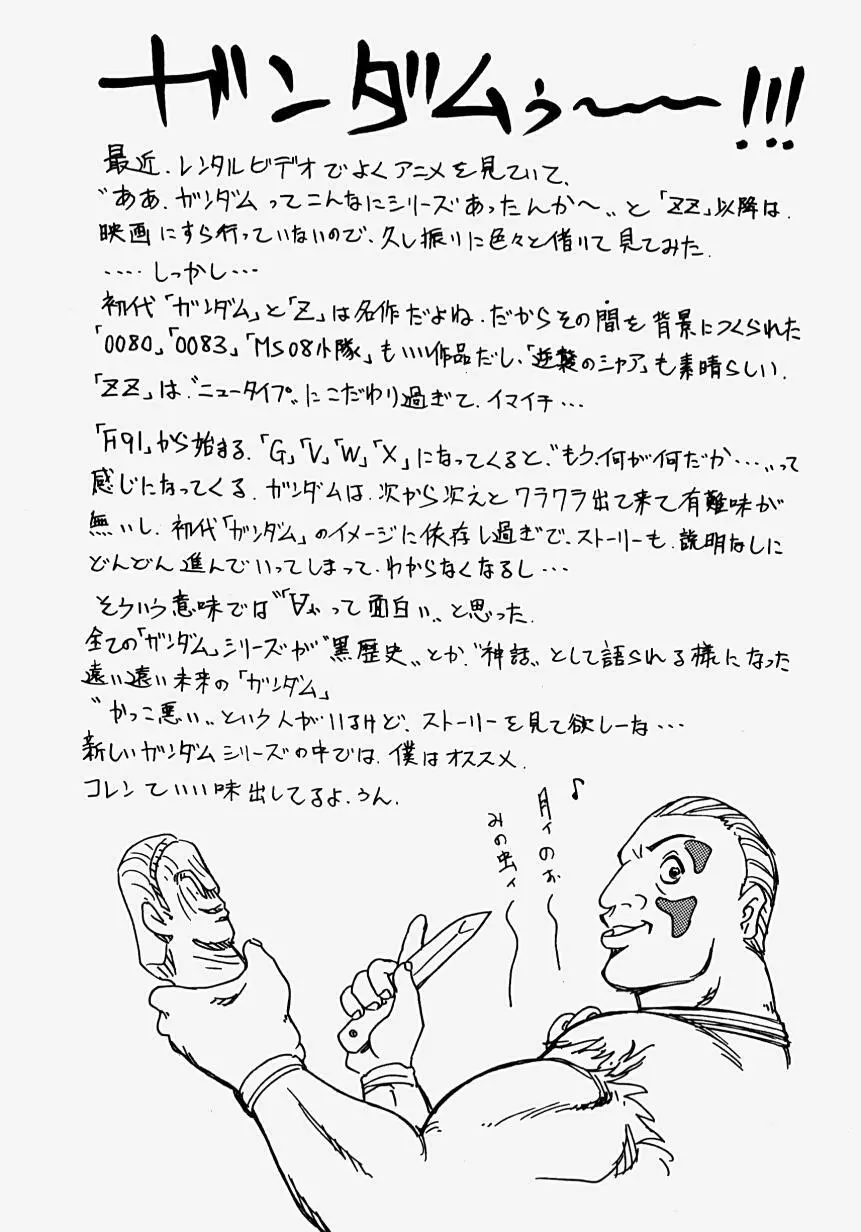 ガンダムぅ〜〜!!!
最近、レンタルビデオでよくアニメを見ていて、
〝ああ、ガンダムってこんなにシリーズあったんか〜〟と「ZZ」以降は、
映画にすら行っていないので、久し振りに色々と借りて見てみた。
‥‥しっかし…
初代「ガンダム」と「Z」は名作だよね。だからその間を背景につくられた
「0080」「0083」「MS08小隊」もいい作品だし、「逆襲のシャア」も素晴らしい。
「ZZ」は〝ニュータイプ〟にこだわり過ぎて、イマイチ…
「F91」から始まる、「G」「V」「W」「X」になってくると、〝もう、何が何だか…〟って
感じになってくる。ガンダムは、次から次えとワラワラ出て来て有難味が
無いし、初代「ガンダム」のイメージに依存し過ぎで、ストーリーも、説明なしに
どんどん進んでいってしまって、わからなくなるし…
そういう意味では〝∀〟って面白い、と思った。
全ての「ガンダム」シリーズが〝黒歴史〟とか、〝神話〟として語られる様になった
遠い遠い未来の「ガンダム」
〝かっこ悪い〟という人がいるけど、ストーリーを見て欲しーな…
新しいガンダムシリーズの中では、僕はオススメ。
コレンていい味出してるよ、うん。
♪
月ィのぉ〜
みの虫ィ〜